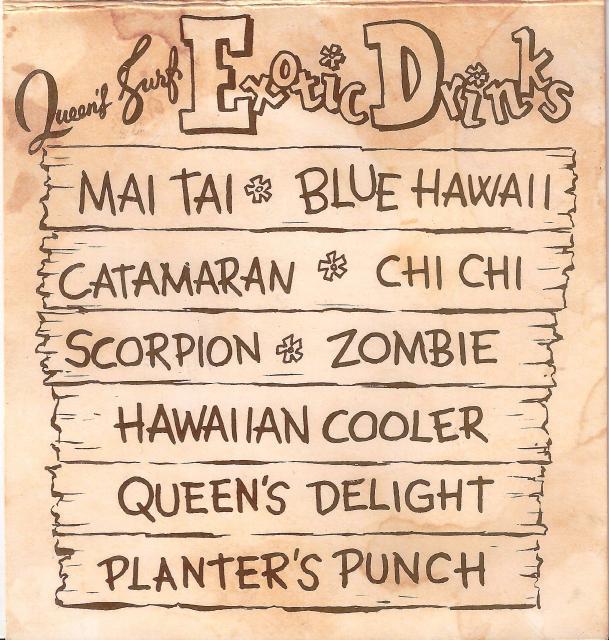 Queen's Surf Exotic Drinks
MAI TAI * BLUE HAWAII
CATAMARAN * CHI CHI
SCORPION * ZOMBIE
HAWAIIAN COOLER
QUEEN'S DELIGHT
PLANTER'S PUNCH